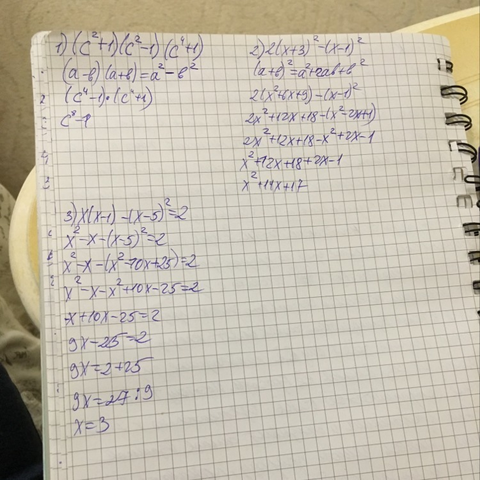 1) (c²+1)(c²-1)(c⁴+1)
(a-b)(a+b)=a²-b²
(c⁴-1)·(c⁴+1)
c⁸-1
2) 2(x+3)²-(x-1)²
(a+b)²=a²+2ab+b²
2(x²+6x+9)-(x-1)²
2x²+12x+18-(x²-2x+1)
2x²+12x+18-x²+2x-1
x²+12x+18+2x-1
x²+14x+17
3) x(x-1)-(x-5)²=2
x²-x-(x-5)²=2
x²-x-(x²-10x+25)=2
x²-x-x²+10x-25=2
-x+10x-25=2
9x-25=2
9x=2+25
9x=27:9
x=3